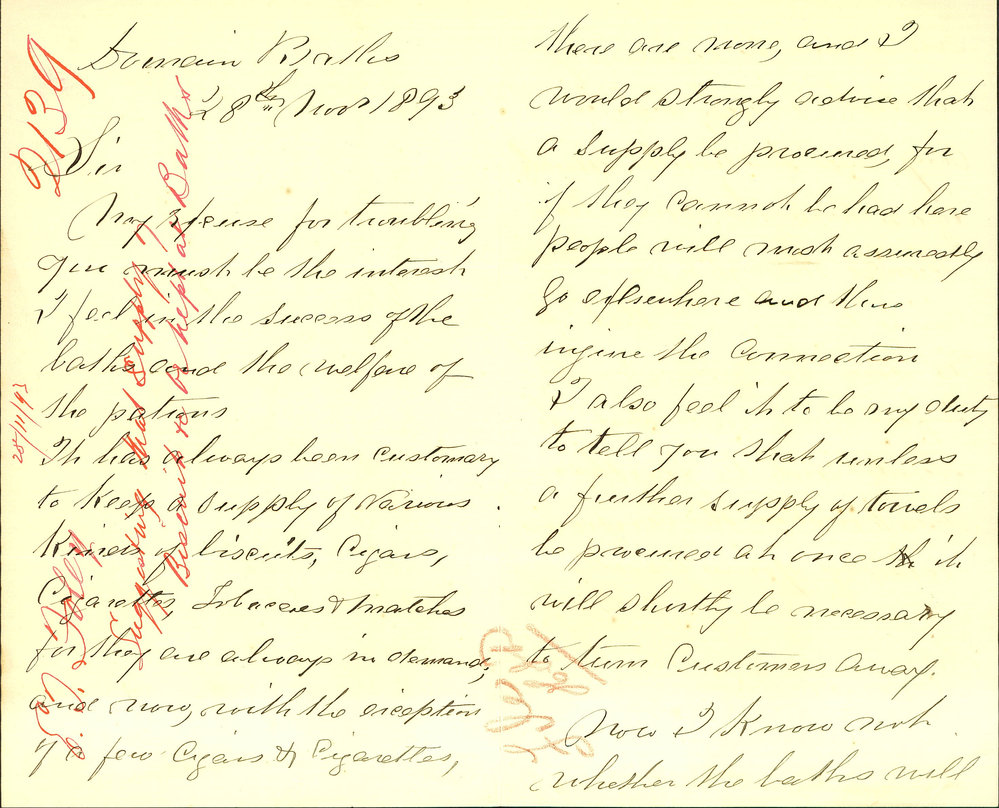 Domain Baths
28th Novr 1893
Sir
My excuse for troubling
you must be the interest
I feel in the success of the
baths and the welfare of
the patrons
It has always been customary
to keep a supply of various
kinds of biscuits, Cigars,
Cigarettes, Tobaccoes & matches
for they are always in demand,
and now, with the exception
of a few Cigars & Cigarettes,
there are none, and I
would strongly advise that
a supply be procured, for
if they cannot be had here
people will most assuredly
go elsewhere and thus
injure the Connection
I also feel it to be my duty
to tell you that unless
a further supply of towels
be procured at once it
will shortly be necessary
to turn Customers away.
Now I know not
whether the baths will
2139
28/11/93
Foley
Suggesting that supply of
Biscuits to be kept at Baths